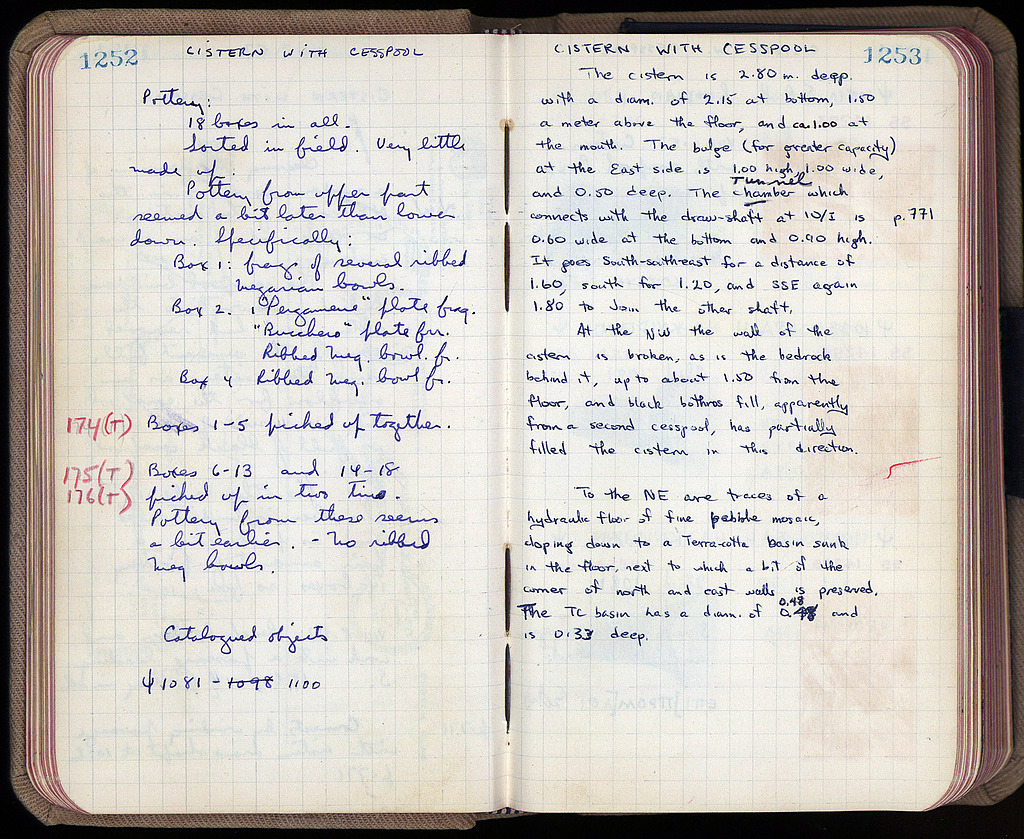 1252 CISTERN WITH CESSPOOL
Pottery:
18 boxes in all.
Sorted in field. Very little
made up.
Pottery from upper part
seemed a bit later than lower
down. Specifically:
Box 1: frags of several ribbed
Megarian bowls.
Box 2. 1 "Pergamene" plate frag.
"Bucchero" plate frr.
Ribbed Meg. bowl. fr.
Box 4 Ribbed Meg. bowl fr.
174(T) Boxes 1-5 picked up together.
175(T) Boxes 6-13 and 14-18
176(T) picked up in two tins.
Pottery from these seems
a bit earlier. - No ribbed
Meg bowls.
Catalogued objects
Ψ 1081 - 1098 1100
CISTERN WITH CESSPOOL 1253
The cistern is 2.80 m. deep.
with a diam. of 2.15 at bottom, 1.50
a meter above the floor, and ca. 1.00 at
the mouth. The bulge (for greater capacity)
at the East side is 1.00 high, 1.00 wide,
Tunnel
and 0.50 deep. The chamber which
connects with the draw-shaft at 10/I is p. 771
0.60 wide at the bottom and 0.90 high.
It goes South-southeast for a distance of
1.60, south for 1.20, and SSE again
1.80 to join the other shaft.
At the NW the wall of the
cistern is broken, as is the bedrock
behind it, up to about 1.50 from the
floor, and black bothros fill, apparently
from a second cesspool, has partially
filled the cistern in this direction.
To the NE are traces of a
hydraulic floor of fine pebble mosaic,
sloping down to a Terra-cotta basin sunk
in the floor, next to which a bit of the
corner of north and east walls is preserved.
0.48
The TC basin has a diam. of 0.48 and
is 0.33 deep.